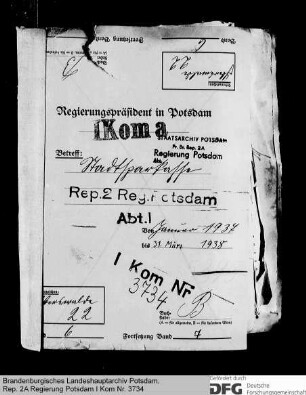 Fortsetzung Band
6
Regierungspräsident in Potsdam
I Kom a
STAATSARCHIV POTSDAM
Pr. Br. Rep. 2A
Regierung Potsdam
Abt.
Betreff: Stadtsparkasse
Rep.2 Reg. Potsdam
Abt. I
Von Januar 1937
bis 31. März 1938
I Kom Nr.
3734
B
22
6
Fortsetzung Band 7
Brandenburgisches Landeshauptarchiv Potsdam,
Rep. 2A Regierung Potsdam I Kom Nr. 3734
Gefördert durch
DFG Deutsche
Forschungsgemeinschaft